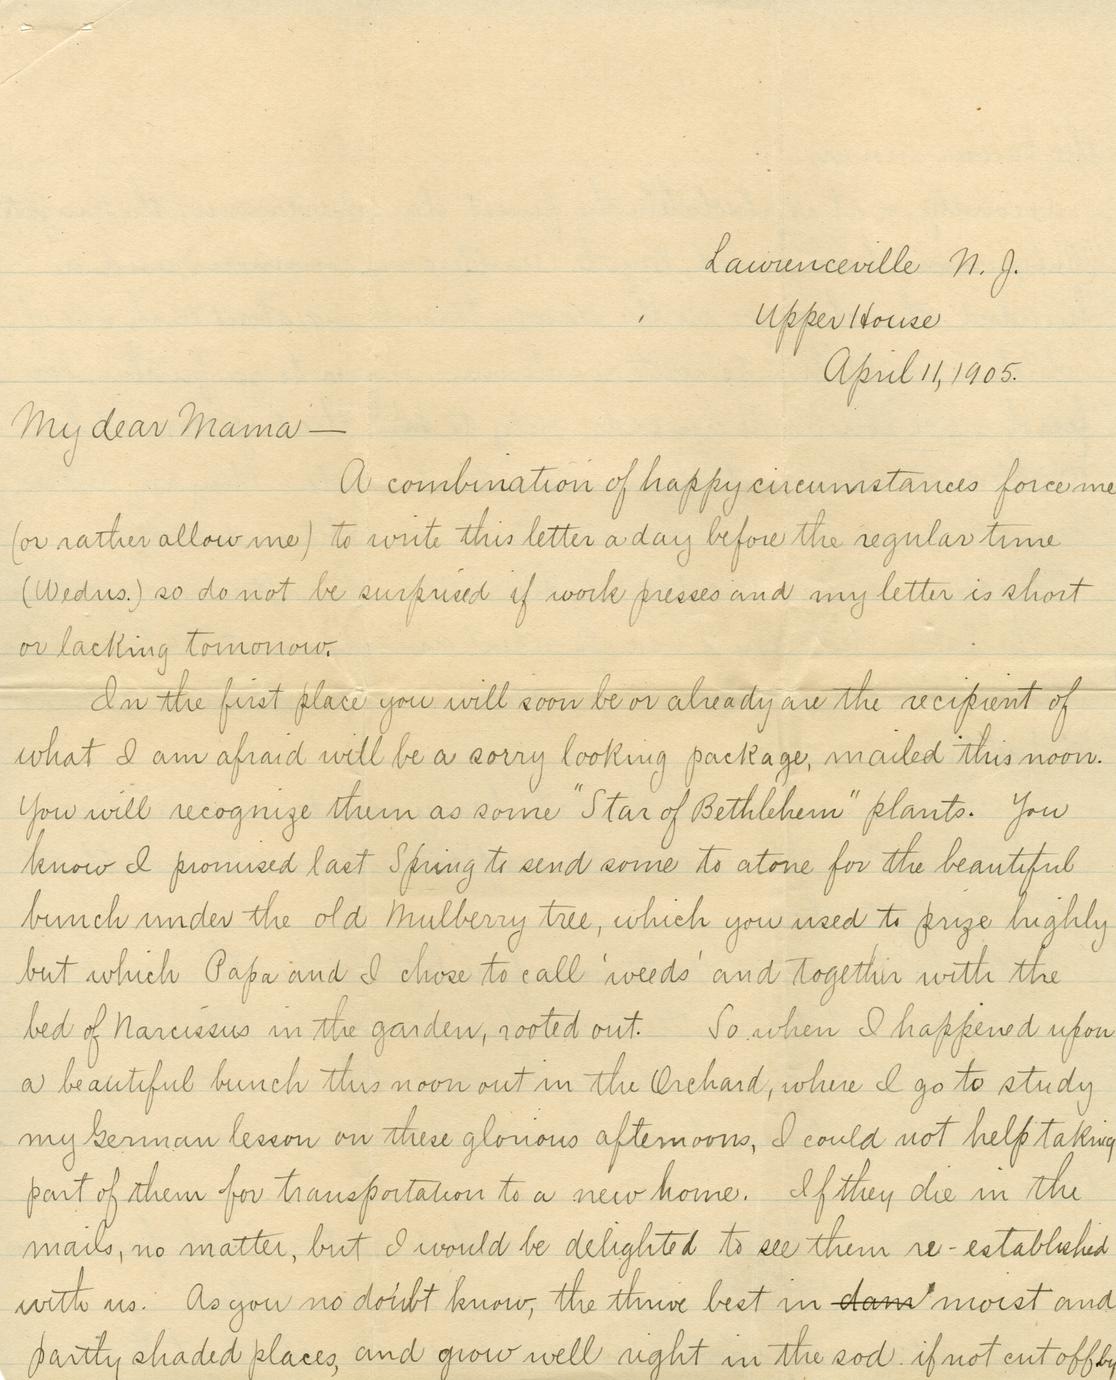 Lawrenceville N. J.
Upper House
April 11, 1905.
My dear Mama —
A combination of happy circumstances force me
(or rather allow me) to write this letter a day before the regular time
(Wedns.) so do not be surprised if work presses and my letter is short
or lacking tomorrow.
In the first place you will soon be or already are the recipient of
what I am afraid will be a sorry looking package, mailed this noon.
You will recognize them as some "Star of Bethlehem" plants. You
know I promised last Spring to send some to atone for the beautiful
bunch under the old Mulberry tree, which you used to prize highly
but which Papa and I chose to call 'weeds' and together with the
bed of Narcissus in the garden, rooted out. So when I happened upon
a beautiful bunch this noon out in the Orchard, where I go to study
my German lesson on these glorious afternoons, I could not help taking
part of them for transportation to a new home. If they die in the
mails, no matter, but I would be delighted to see them re-established
with us. As you no doubt know, the thrive best in dam moist and
partly shaded places, and grow well right in the sod if not cut off by